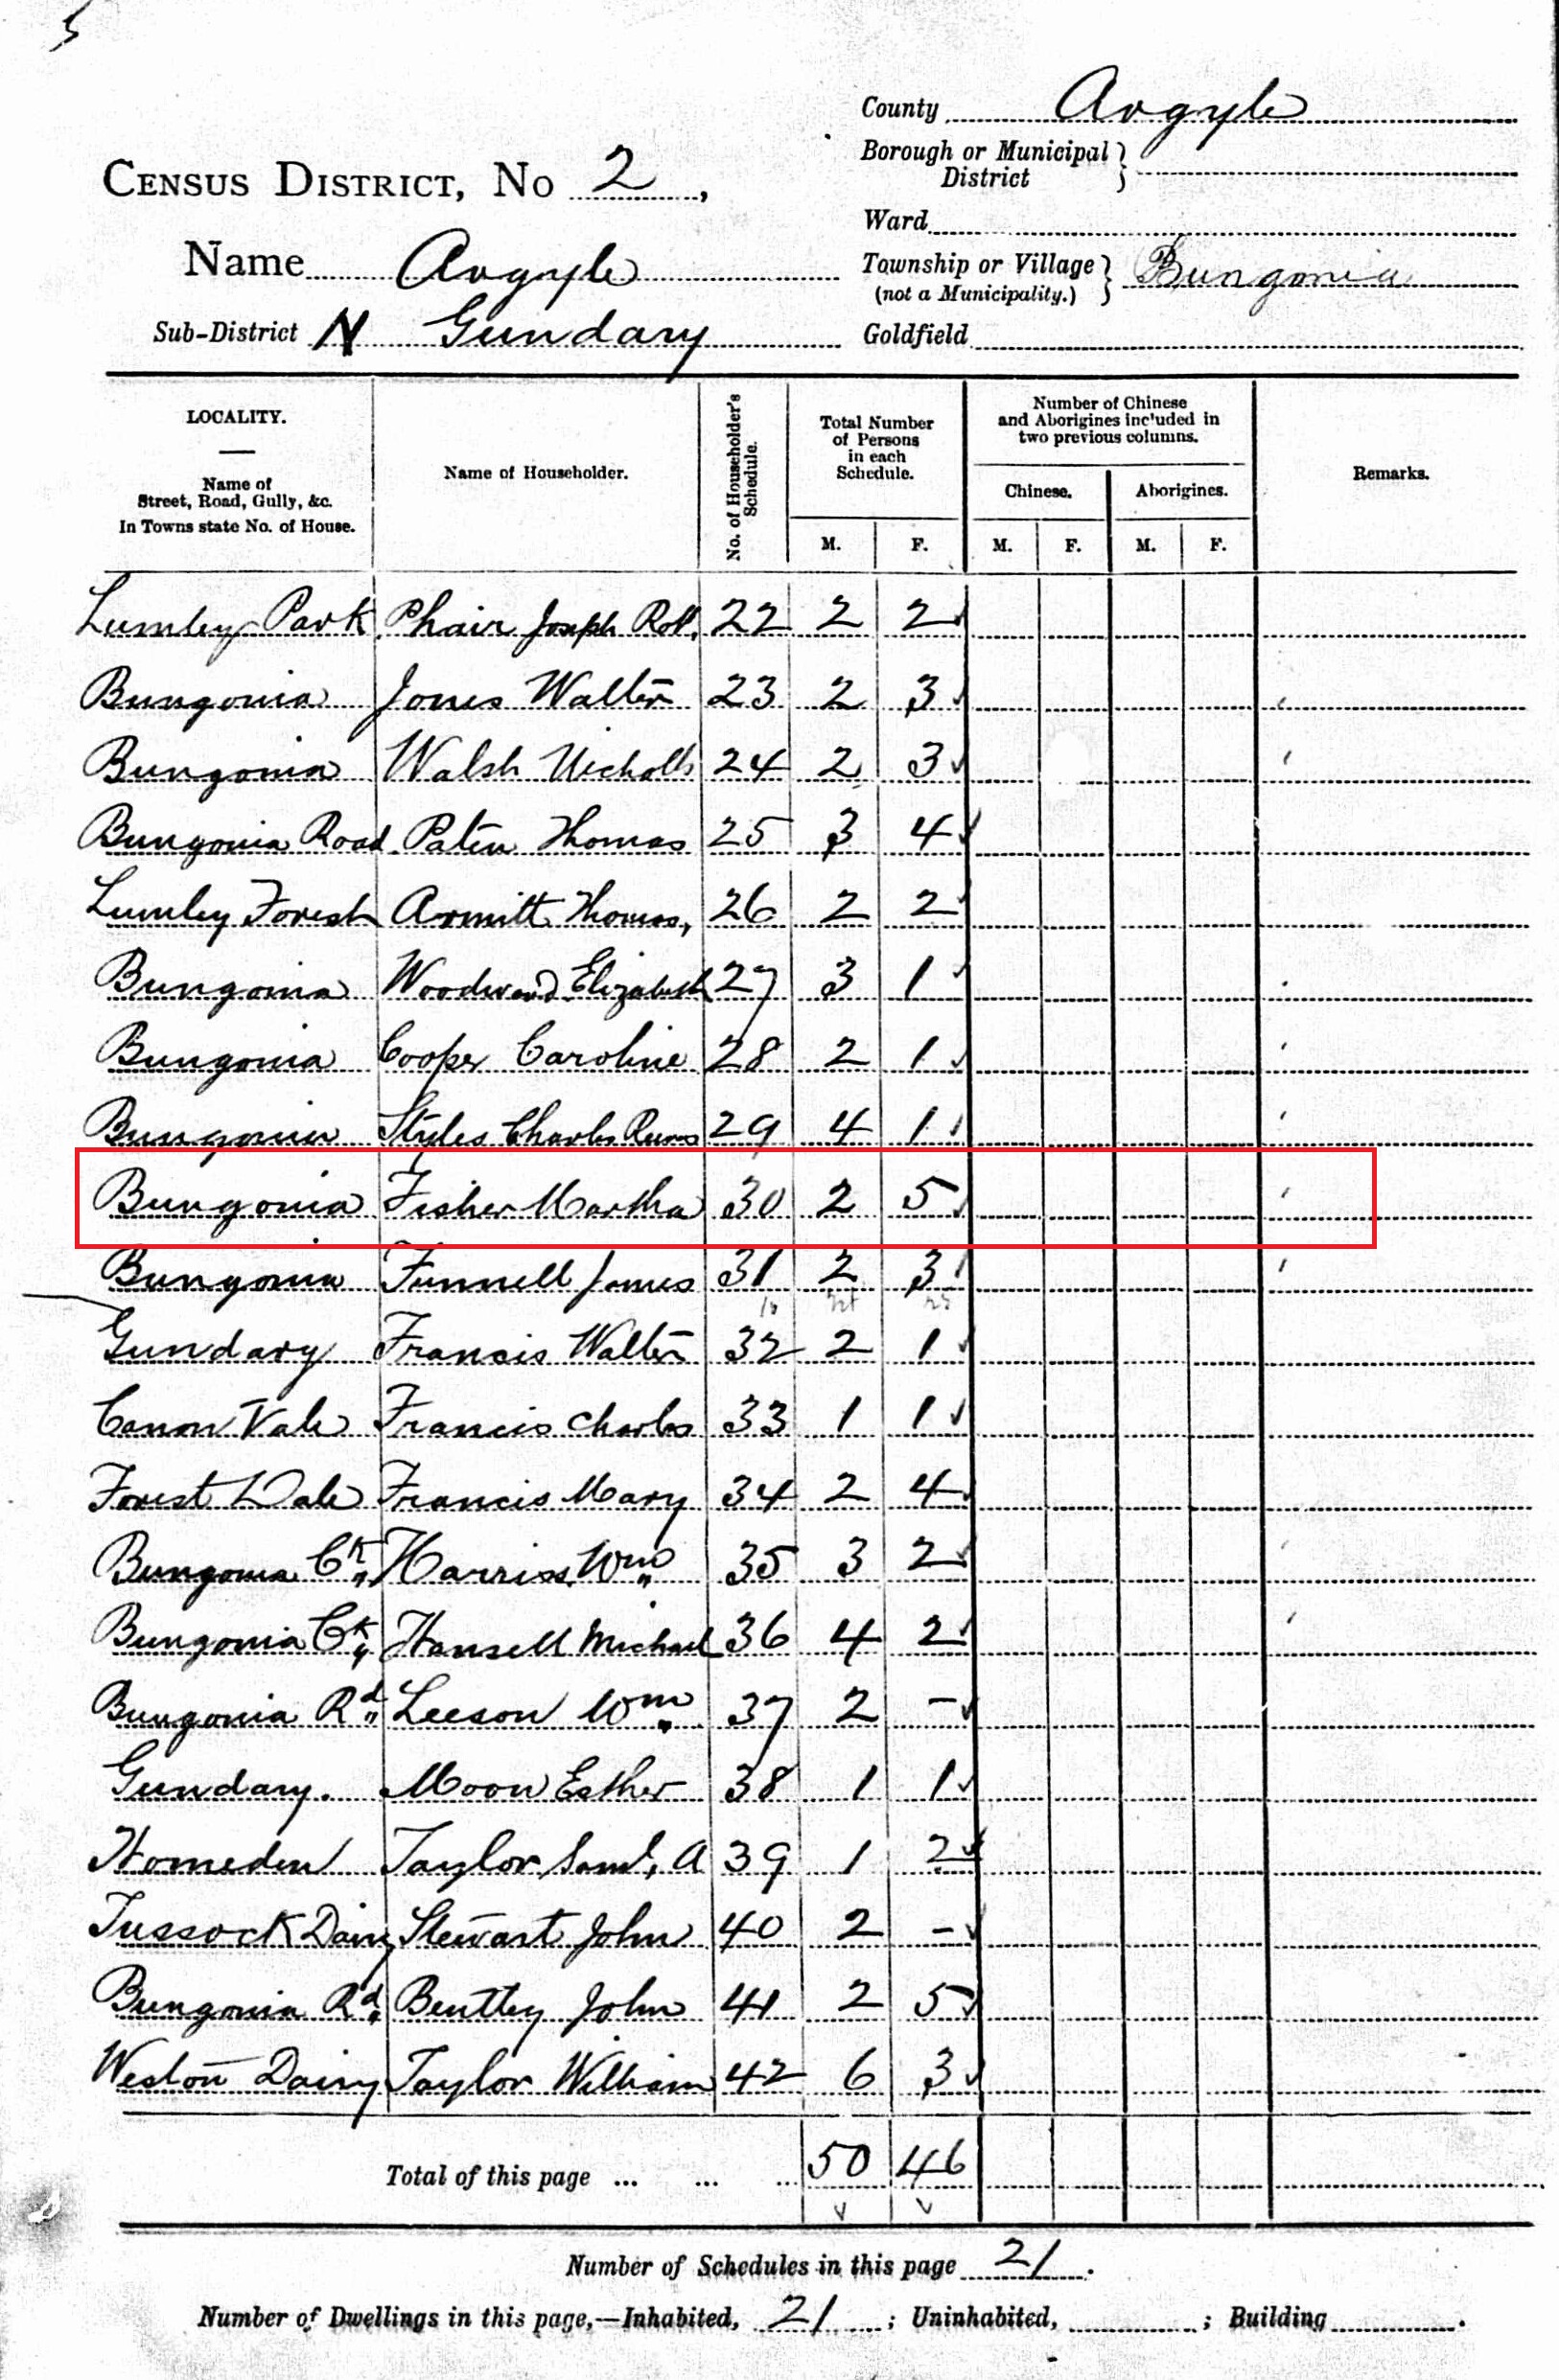 County Argyle
Borough or Municipal District
CENSUS DISTRICT, No 2,
Ward
Name Argyle
Township or Village (not a Municipality.) Bungonia
Sub-District N Gundary
Goldfield
LOCALITY.
Name of
Street, Road, Gully, &c.
In Towns state No. of House.
Name of Householder.
No. of Householder's Schedule.
Total Number of Persons in each Schedule.
Number of Chinese and Aborigines included in two previous columns.
Remarks.
Chinese. Aborigines.
M. F. M. F. M. F.
Lumley Park Phair Joseph Robt. 22 2 2
Bungonia Jones Walter 23 2 3
Bungonia Walsh Nicholls 24 2 3
Bungonia Road Paten Thomas 25 3 4
Lumley Forest Armitt Thomas, 26 2 2
Bungonia Woodward Elizabeth 27 3 1
Bungonia Cooper Caroline 28 2 1
Bungonia Styles Charles 29 4 1
Bungonia Fisher Martha 30 2 5
Bungonia Funnell James 31 2 3
Gundary Francis Walter 32 2 1
Canon Vale Francis Charles 33 1 1
Forest Dale Francis Mary 34 2 4
Bungonia Ck Harriss Wm 35 3 2
Bungonia Ck Hansell Michael 36 4 2
Bungonia Rd Leeson Wm 37 2 -
Gundary. Moon Esther 38 1 1
Homeden Taylor Saml, A 39 1 2
Tussock Dairy Stewart John 40 2 -
Bungonia Rd Bentley John 41 2 5
Weston Dairy Taylor William 42 6 3
Total of this page ... ... ... 50 46
Number of Schedules in this page 21.
Number of Dwellings in this page,—Inhabited, 21; Uninhabited, ; Building .